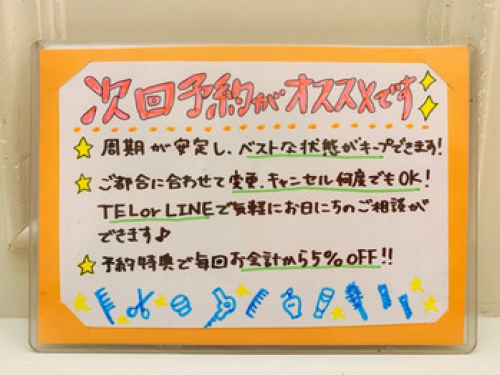 次回予約がオススメです
周期が安定し、ベストな状態がキープできます!
ご都合に合わせて変更、キャンセル何度でもOK!
TEL or LINEで気軽にお日にちのご相談が
できます♪
予約特典で毎回お会計から5%OFF!!